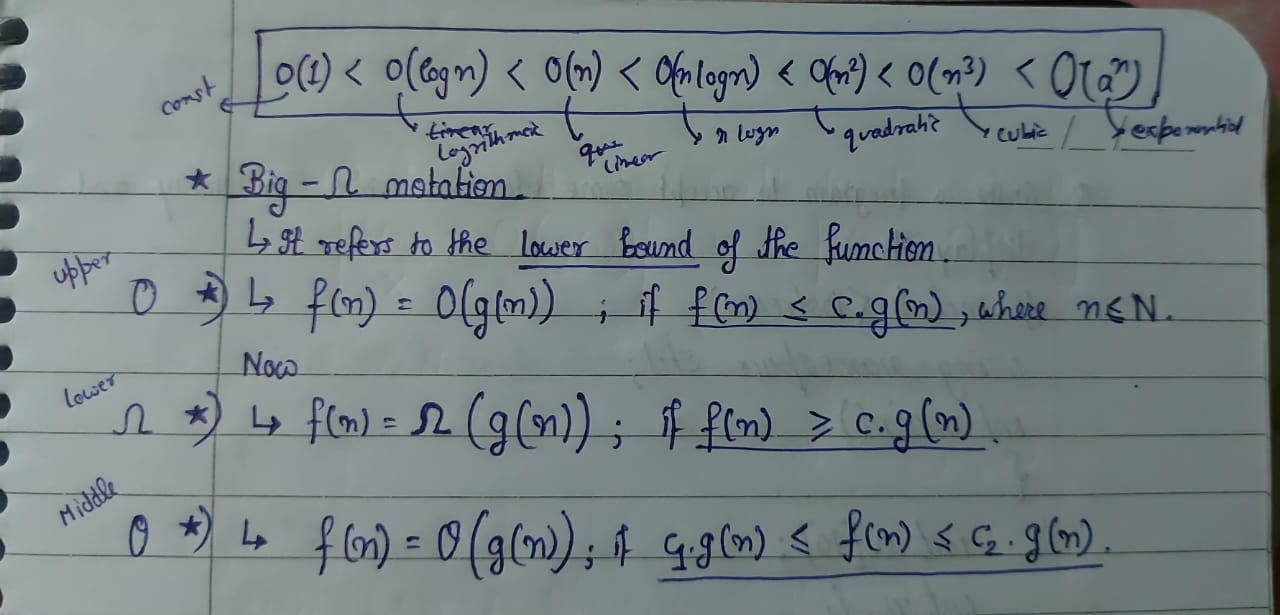 O(1) < O(logn) < O(n) < O(n logn) < O(n²) < O(n³) < O(aⁿ)
const logrithmetic linear n logn quadratic cubic / exponential
* Big - Ω notation.
↳ It refers to the lower bound of the function.
upper O *) ↳ f(n) = O(g(n)) ; if f(n) ≤ c.g(n), where n ≤ N.
Now
Lower Ω *) ↳ f(n) = Ω (g(n)) ; if f(n) ≥ c.g(n).
Middle θ *) ↳ f(n) = θ(g(n)); if c₁.g(n) ≤ f(n) ≤ c₂.g(n).